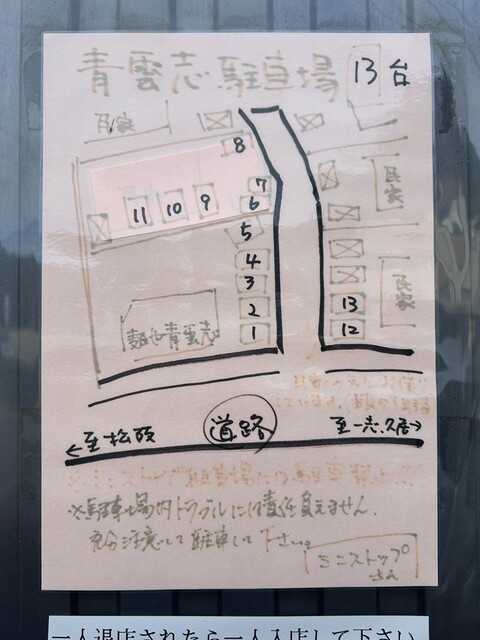 青雲志 駐車場 13台
民家
8
民家
7
11 10 9 6
5
4
3
民家
2 13
麺や青雲志 1 12
←至松阪 道路 至一志.久居→
※ミニストップ駐車場には駐車禁止
※駐車場内トラブルには責任負えません.
充分注意して駐車して下さい。
ミニストップさん
一人退店されたら一人入店して下さい